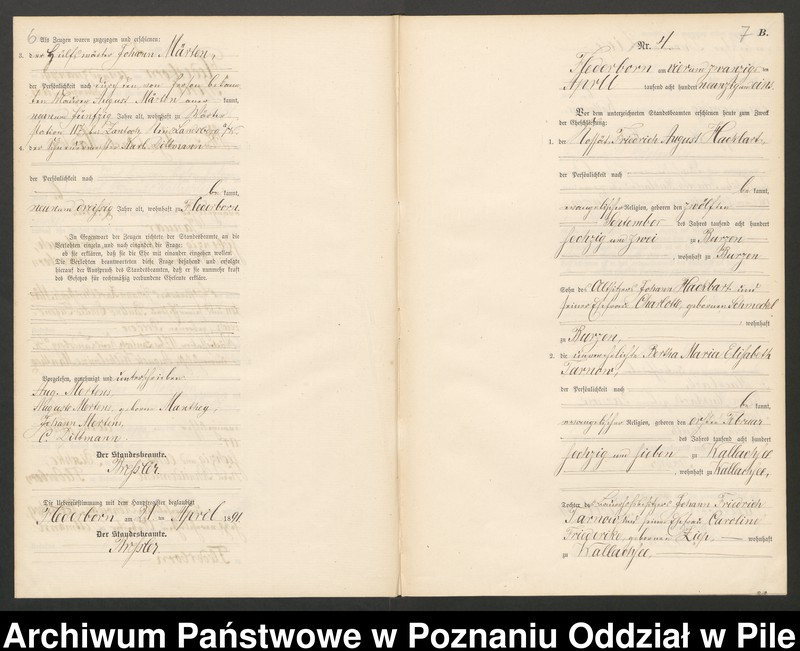 6
Als Zeugen waren zugezogen und erschienen:
3. der Hülfswärter Johann Märten,
der Persönlichkeit nach
den Maurer August Märten
kannt,
neunundfünfzig Jahre alt, wohnhaft zu Wärter-
station 117
4. der Karl Dittmann
der Persönlichkeit nach
be kannt,
neununddreissig Jahre alt, wohnhaft zu Flederborn.
In Gegenwart der Zeugen richtete der Standesbeamte an die
Verlobten einzeln und nach einander die Frage:
ob sie erklären, daß sie die Ehe mit einander eingehen wollen.
Die Verlobten beantworteten diese Frage bejahend und erfolgte
hierauf der Ausspruch des Standesbeamten, daß er sie nunmehr kraft
des Gesetzes für rechtmäßig verbundene Eheleute erkläre.
Vorgelesen, genehmigt und unterschrieben
Aug. Mertens,
Auguste Mertens, geborne Manthey,
Johann Mertens,
C. Dittmann.
Der Standesbeamte.
Die Uebereinstimmung mit dem Hauptregister beglaubigt
Flederborn am 21 ten April 1891.
Der Standesbeamte.
7
B.
Nr. 4.
Flederborn am vierundzwanzigsten
April tausend acht hundert neunzig und eins.
Vor dem unterzeichneten Standesbeamten erschienen heute zum Zweck
der Eheschließung:
1. der Kossät Friedrich August Hackbart,
der Persönlichkeit nach
be kannt,
evangelischer Religion, geboren den zwölften
des Jahres tausend acht hundert
sechzig und zwei zu Burzen
, wohnhaft zu Burzen
Sohn des Altsitzers Johann Hackbart und
seiner Ehefrau Charlotte, geborenen Schmeckel
wohnhaft
zu Burzen,
2. die unverehelichte Bertha Maria Elisabeth
Tarnow,
der Persönlichkeit nach
be kannt,
evangelischer Religion, geboren den ersten Februar
des Jahres tausend acht hundert
sechzig und sieben zu Wallachsee
, wohnhaft zu Wallachsee,
Tochter des Johann Friedrich
Tarnow und seiner Ehefrau Caroline
Friederike, geborenen wohnhaft
zu Wallachsee.
Archiwum Państwowe w Poznaniu Oddział w Pile